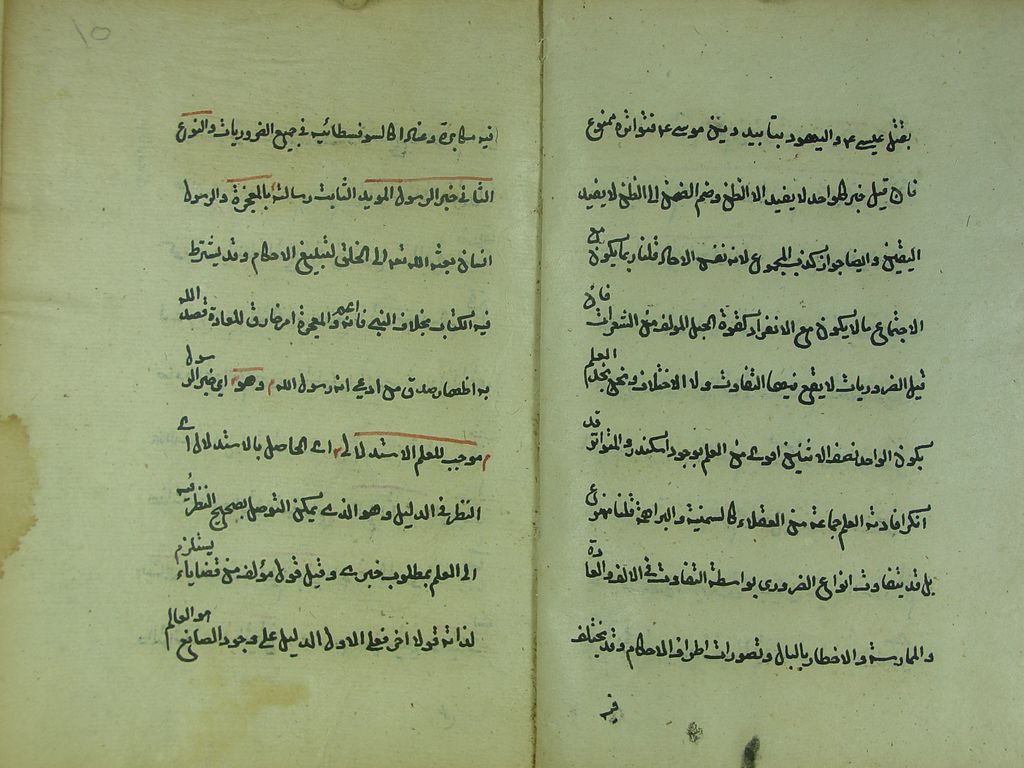 بقتل عيسى ع م واليهود بتابيد دين موسى ع م فتواتره ممنوع
فان قيل خبر كل واحد لا يفيد الا الظن وضم الظن الى الظن لا يفيد
اليقين وايضا جواز كذب المجموع لانه نفس الاحاد قلنا ربما يكون مع
الاجتماع ما لا يكون مع الانفراد كقوة الحبل المولف من الشعرات فان
قيل الضروريات لا يقع فيها التفاوت ولا الاختلاف ونحن نجد العلم
بكون الواحد نصف الاثنين اقوى من العلم بوجود اسكندر والمتواتر قد
انكر افادته العلم جماعة من العقلاء كالسمنية والبراهمة قلنا ممنوع
بل قد يتفاوت انواع الضرورى بواسطة التفاوت في الالف والعادة
والممارسة والاخطار بالبال وتصورات اطراف الاحكام وقد يختلف
فيه
١٥
فيه مكابرة وعنادا كالسوفسطائيه في جميع الضروريات والنوع
الثاني خبر الرسول المويد الثابت رسالته بالمعجزة والرسول
انسان بعثه الله تعه الى الخلق لتبليغ الاحكام وقد يشترط
فيه الكتاب بخلاف النبي فانه اعم والمعجزة امر خارق للعادة قصد الله
به اظهار صدق من ادعى انه رسول الله وهو اي خبر الرسول
موجب للعلم الاستدلالى اى الحاصل بالاستدلال اى
النظر في الدليل وهو الذى يمكن التوصل بصحيح النظر فيه
الى العلم بمطلوب خبرى وقيل قول مؤلف من قضايا يستلزم
لذاته قولا اخر فعلى الاول الدليل على وجود الصانع هو العالم